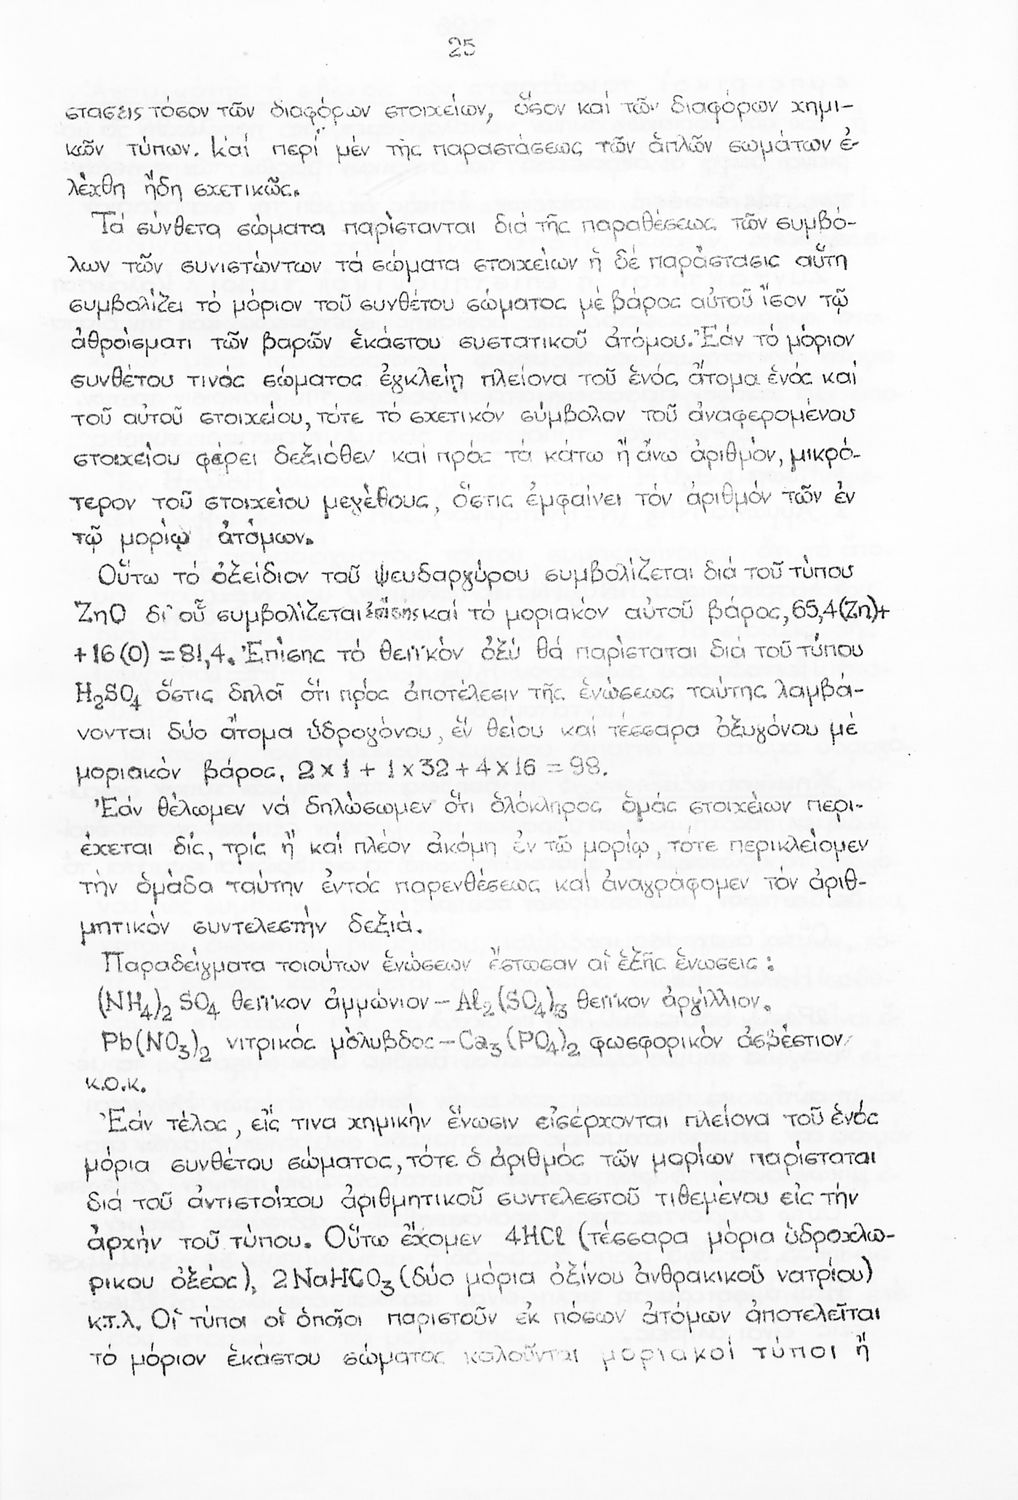 25
στασεις τόσον τῶν διαφόρων στοιχείων, ὅσον καί τῶν διαφόρων χημι-
κῶν τύπων. Καί περί μέν τῆς παραστάσεως τῶν ἁπλῶν σωμάτων ἐ-
λέχθη ἤδη σχετικῶς.
Τά σύνθετα σώματα παρίστανται διά τῆς παραθέσεως τῶν συμβό-
λων τῶν συνιστώντων τά σώματα στοιχείων ἡ δέ παράστασις αὕτη
συμβολίζει τό μόριον τοῦ συνθέτου σώματος μέ βάρος αὐτοῦ ἴσον τῷ
ἀθροίσματι τῶν βαρῶν ἑκάστου συστατικοῦ ἀτόμου. Ἐάν τό μόριον
συνθέτου τινός σώματος ἐγκλείῃ πλείονα τοῦ ἑνός ἄτομα ἑνός καί
τοῦ αὐτοῦ στοιχείου, τότε τό σχετικόν σύμβολον τοῦ ἀναφερομένου
στοιχείου φέρει δεξιόθεν καί πρός τά κάτω ἤ ἄνω ἀριθμόν, μικρό-
τερον τοῦ στοιχείου μεγέθους, ὅστις ἐμφαίνει τόν ἀριθμόν τῶν ἐν
τῷ μορίῳ ἀτόμων.
Οὕτω τό ὀξείδιον τοῦ ψευδαργύρου συμβολίζεται διά τοῦ τύπου
ZnO δι' οὗ συμβολίζεται ἐπίσης καί τό μοριακόν αὐτοῦ βάρος, 65,4(Zn)+
+16(O) = 81,4. Ἐπίσης τό θειϊκόν ὀξύ θά παρίσταται διά τοῦ τύπου
H₂SO₄ ὅστις δηλοῖ ὅτι πρός ἀποτέλεσιν τῆς ἑνώσεως ταύτης λαμβά-
νονται δύο ἄτομα ὑδρογόνου, ἕν θείου καί τέσσαρα ὀξυγόνου μέ
μοριακόν βάρος, 2×1 + 1×32 + 4×16 = 98.
Ἐάν θέλωμεν νά δηλώσωμεν ὅτι ὁλόκληρος ὁμάς στοιχείων περι-
έχεται δίς, τρίς ἤ καί πλέον ἀκόμη ἐν τῷ μορίῳ, τότε περικλείομεν
τήν ὁμάδα ταύτην ἐντός παρενθέσεως καί ἀναγράφομεν τόν ἀριθ-
μητικόν συντελεστήν δεξιά.
Παραδείγματα τοιούτων ἑνώσεων ἔστωσαν αἱ ἑξῆς ἑνώσεις:
(NH₄)₂ SO₄ θειϊκον ἀμμώνιον – Al₂(SO₄)₃ θειϊκον ἀργίλλιον.
Pb(NO₃)₂ νιτρικός μόλυβδος – Ca₃(PO₄)₂ φωσφορικόν ἀσβέστιον
κ.ο.κ.
Ἐάν τέλος, εἴς τινα χημικήν ἕνωσιν εἰσέρχονται πλείονα τοῦ ἑνός
μόρια συνθέτου σώματος, τότε ὁ ἀριθμός τῶν μορίων παρίσταται
διά τοῦ ἀντιστοίχου ἀριθμητικοῦ συντελεστοῦ τιθεμένου εἰς τήν
ἀρχήν τοῦ τύπου. Οὕτω ἔχομεν 4HCl (τέσσαρα μόρια ὑδροχλω-
ρικου ὀξέος), 2NaHCO₃ (δύο μόρια ὀξίνου ἀνθρακικοῦ νατρίου)
κ.τ.λ. Οἱ τύποι οἱ ὁποῖοι παριστοῦν ἐκ πόσων ἀτόμων ἀποτελεῖται
τό μόριον ἑκάστου σώματος καλοῦνται μοριακοί τύποι ἤ